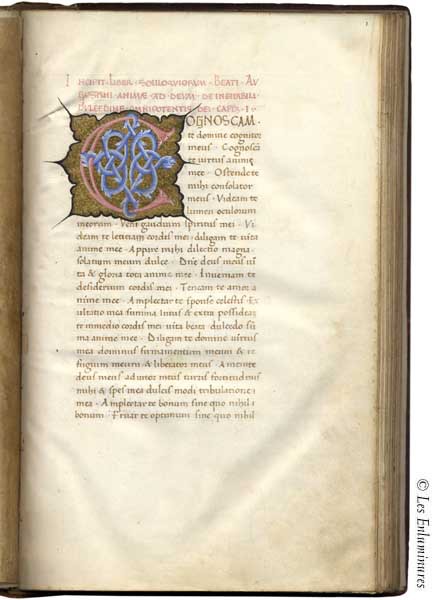 INCIPIT · LIBER · SOLILOQUIORUM · BEATI · AU
GUSTINI · ANIMÆ · AD DEUM · DE INEFFABILI
DULCEDINE · OMNIPOTENTIS · DEI · CAPIT · I ·
COGNOSCAM ·
te domine cognitor
meus · Cognoscã
te virtus animę
meę · Ostende te
mihi consolator
meus · Videam te
lumen oculorum
meorum · Veni gaudium spiritus mei · Vi
deam te letitiam cordis mei · diligam te vita
anime meę · Appare mihi dilectio magna ·
solatium meum dulce · Dñe deus meus vi
ta & gloria tota anime meę · Inveniam te
desiderium cordis mei · Teneam te amor a
nime meę · Amplectar te sponse celestis · Ex
ultatio mea summa intus & extra possideã
te in medio cordis mei vita beata · dulcedo sũ
ma anime meę · Diligam te domine virtus
mea dominus firmamentum meum & re
fugium meum & liberator meus · Amem te
deus meus adiutor meus turris fortitudinis
mihi & spes mea dulcis in oĩ tribulatione
mea · Amplectar te bonum sine quo nihil ẽ
bonum · Fruar te optimum sine quo nihil
© Les Enluminures